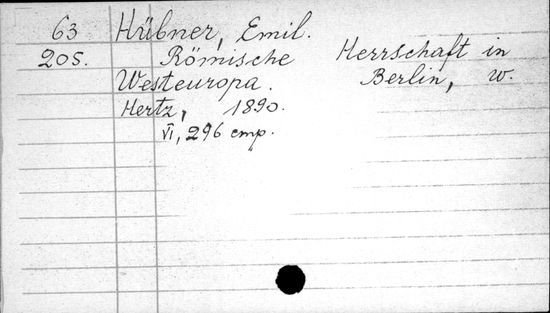 63 Hübner, Emil.
205. Römische Herrschaft in
Westeuropa. Berlin, W.
Hertz, 1890.
VI, 296 стр.